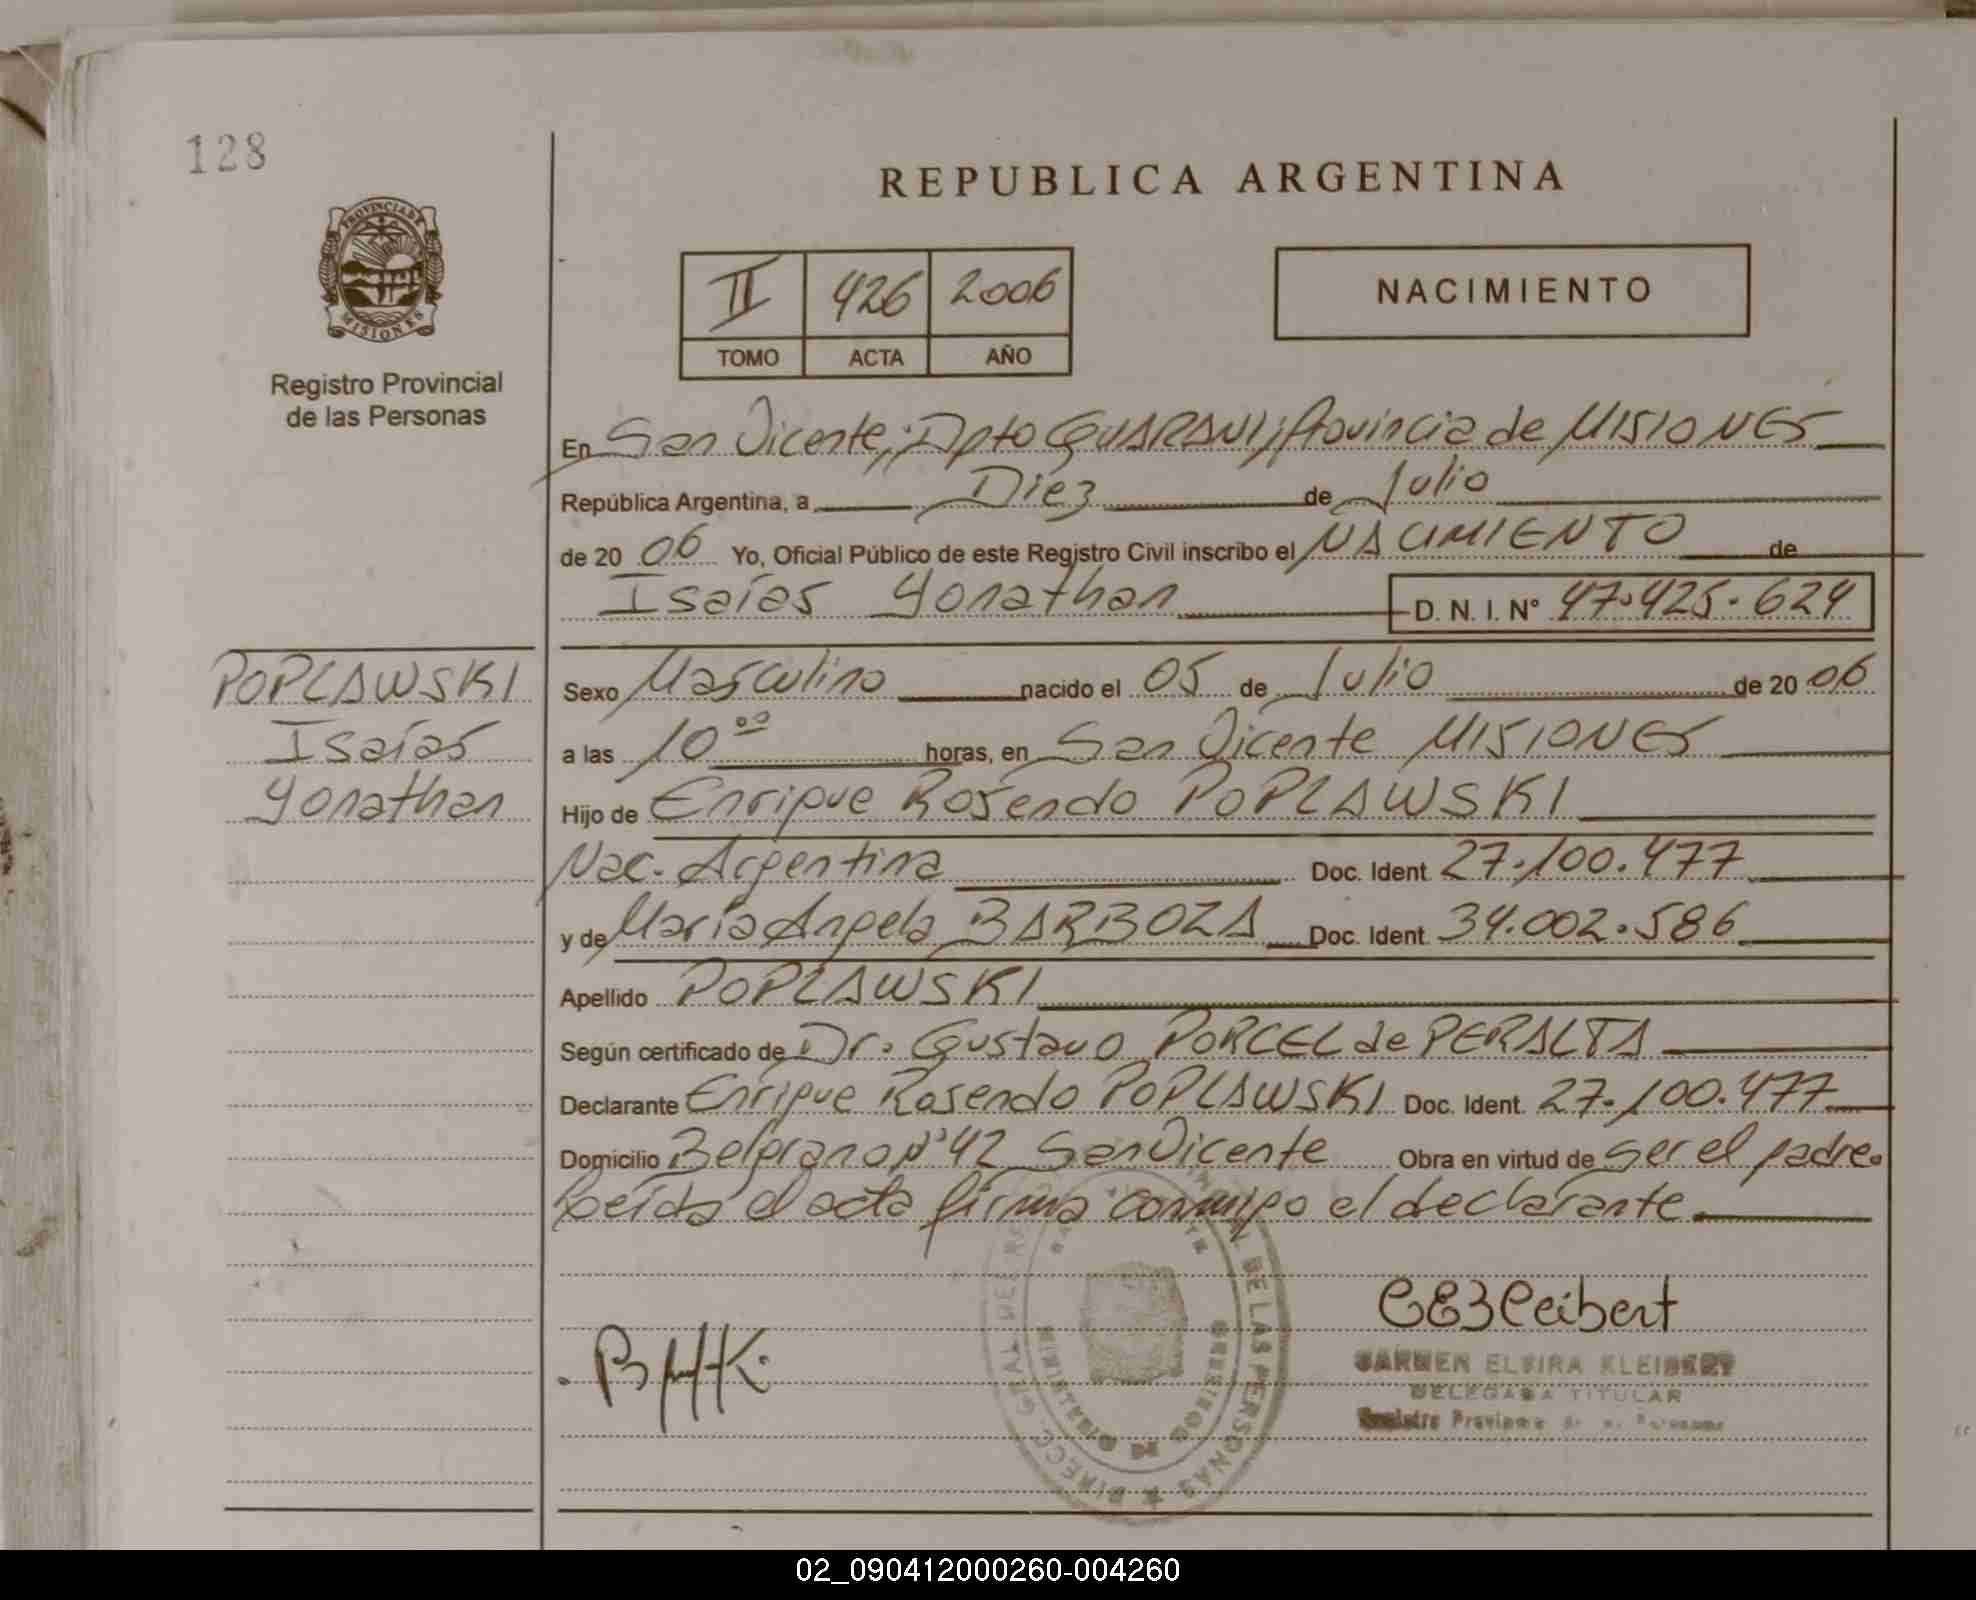 128
REPUBLICA ARGENTINA
PROVINCIA DE
MISIONES
Registro Provincial
de las Personas
II 426 2006
TOMO ACTA AÑO
NACIMIENTO
En San Vicente, Dpto GUARANI, Provincia de MISIONES
República Argentina, a Diez de Julio
de 20 06 Yo, Oficial Público de este Registro Civil inscribo el NACIMIENTO de
Isaías Yonathan D. N. I. N° 47.425.624
POPLAWSKI
Isaías
Yonathan
Sexo Masculino nacido el 05 de Julio de 20 06
a las 10 00 horas, en San Vicente MISIONES
Hijo de Enrique Rosendo POPLAWSKI
Nac. Argentina Doc. Ident 27.100.477
y de Maria Angela BARBOZA Doc. Ident 34.002.586
Apellido POPLAWSKI
Según certificado de Dr. Gustavo PORCEL de PERALTA
Declarante Enrique Rosendo POPLAWSKI Doc. Ident. 27.100.477
Domicilio Belgrano N° 42 San Vicente Obra en virtud de ser el padre.
Leída el acta firma conmigo el declarante
CARMEN ELVIRA KLEIBERT
DELEGADA TITULAR
Registro Provincial de las Personas
DE LAS PERSONAS
MINISTERIO DE GOBIERNO
02_090412000260-004260